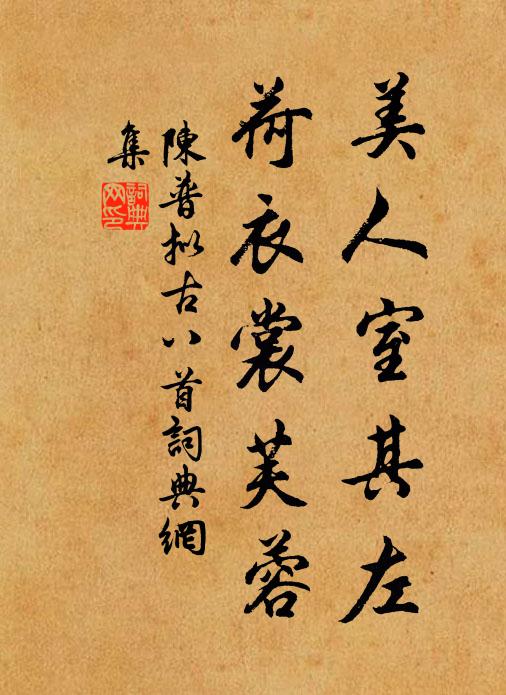 美人室其左
荷衣裳芙蓉
陳普拟古八首詞典網
集
詞典网印